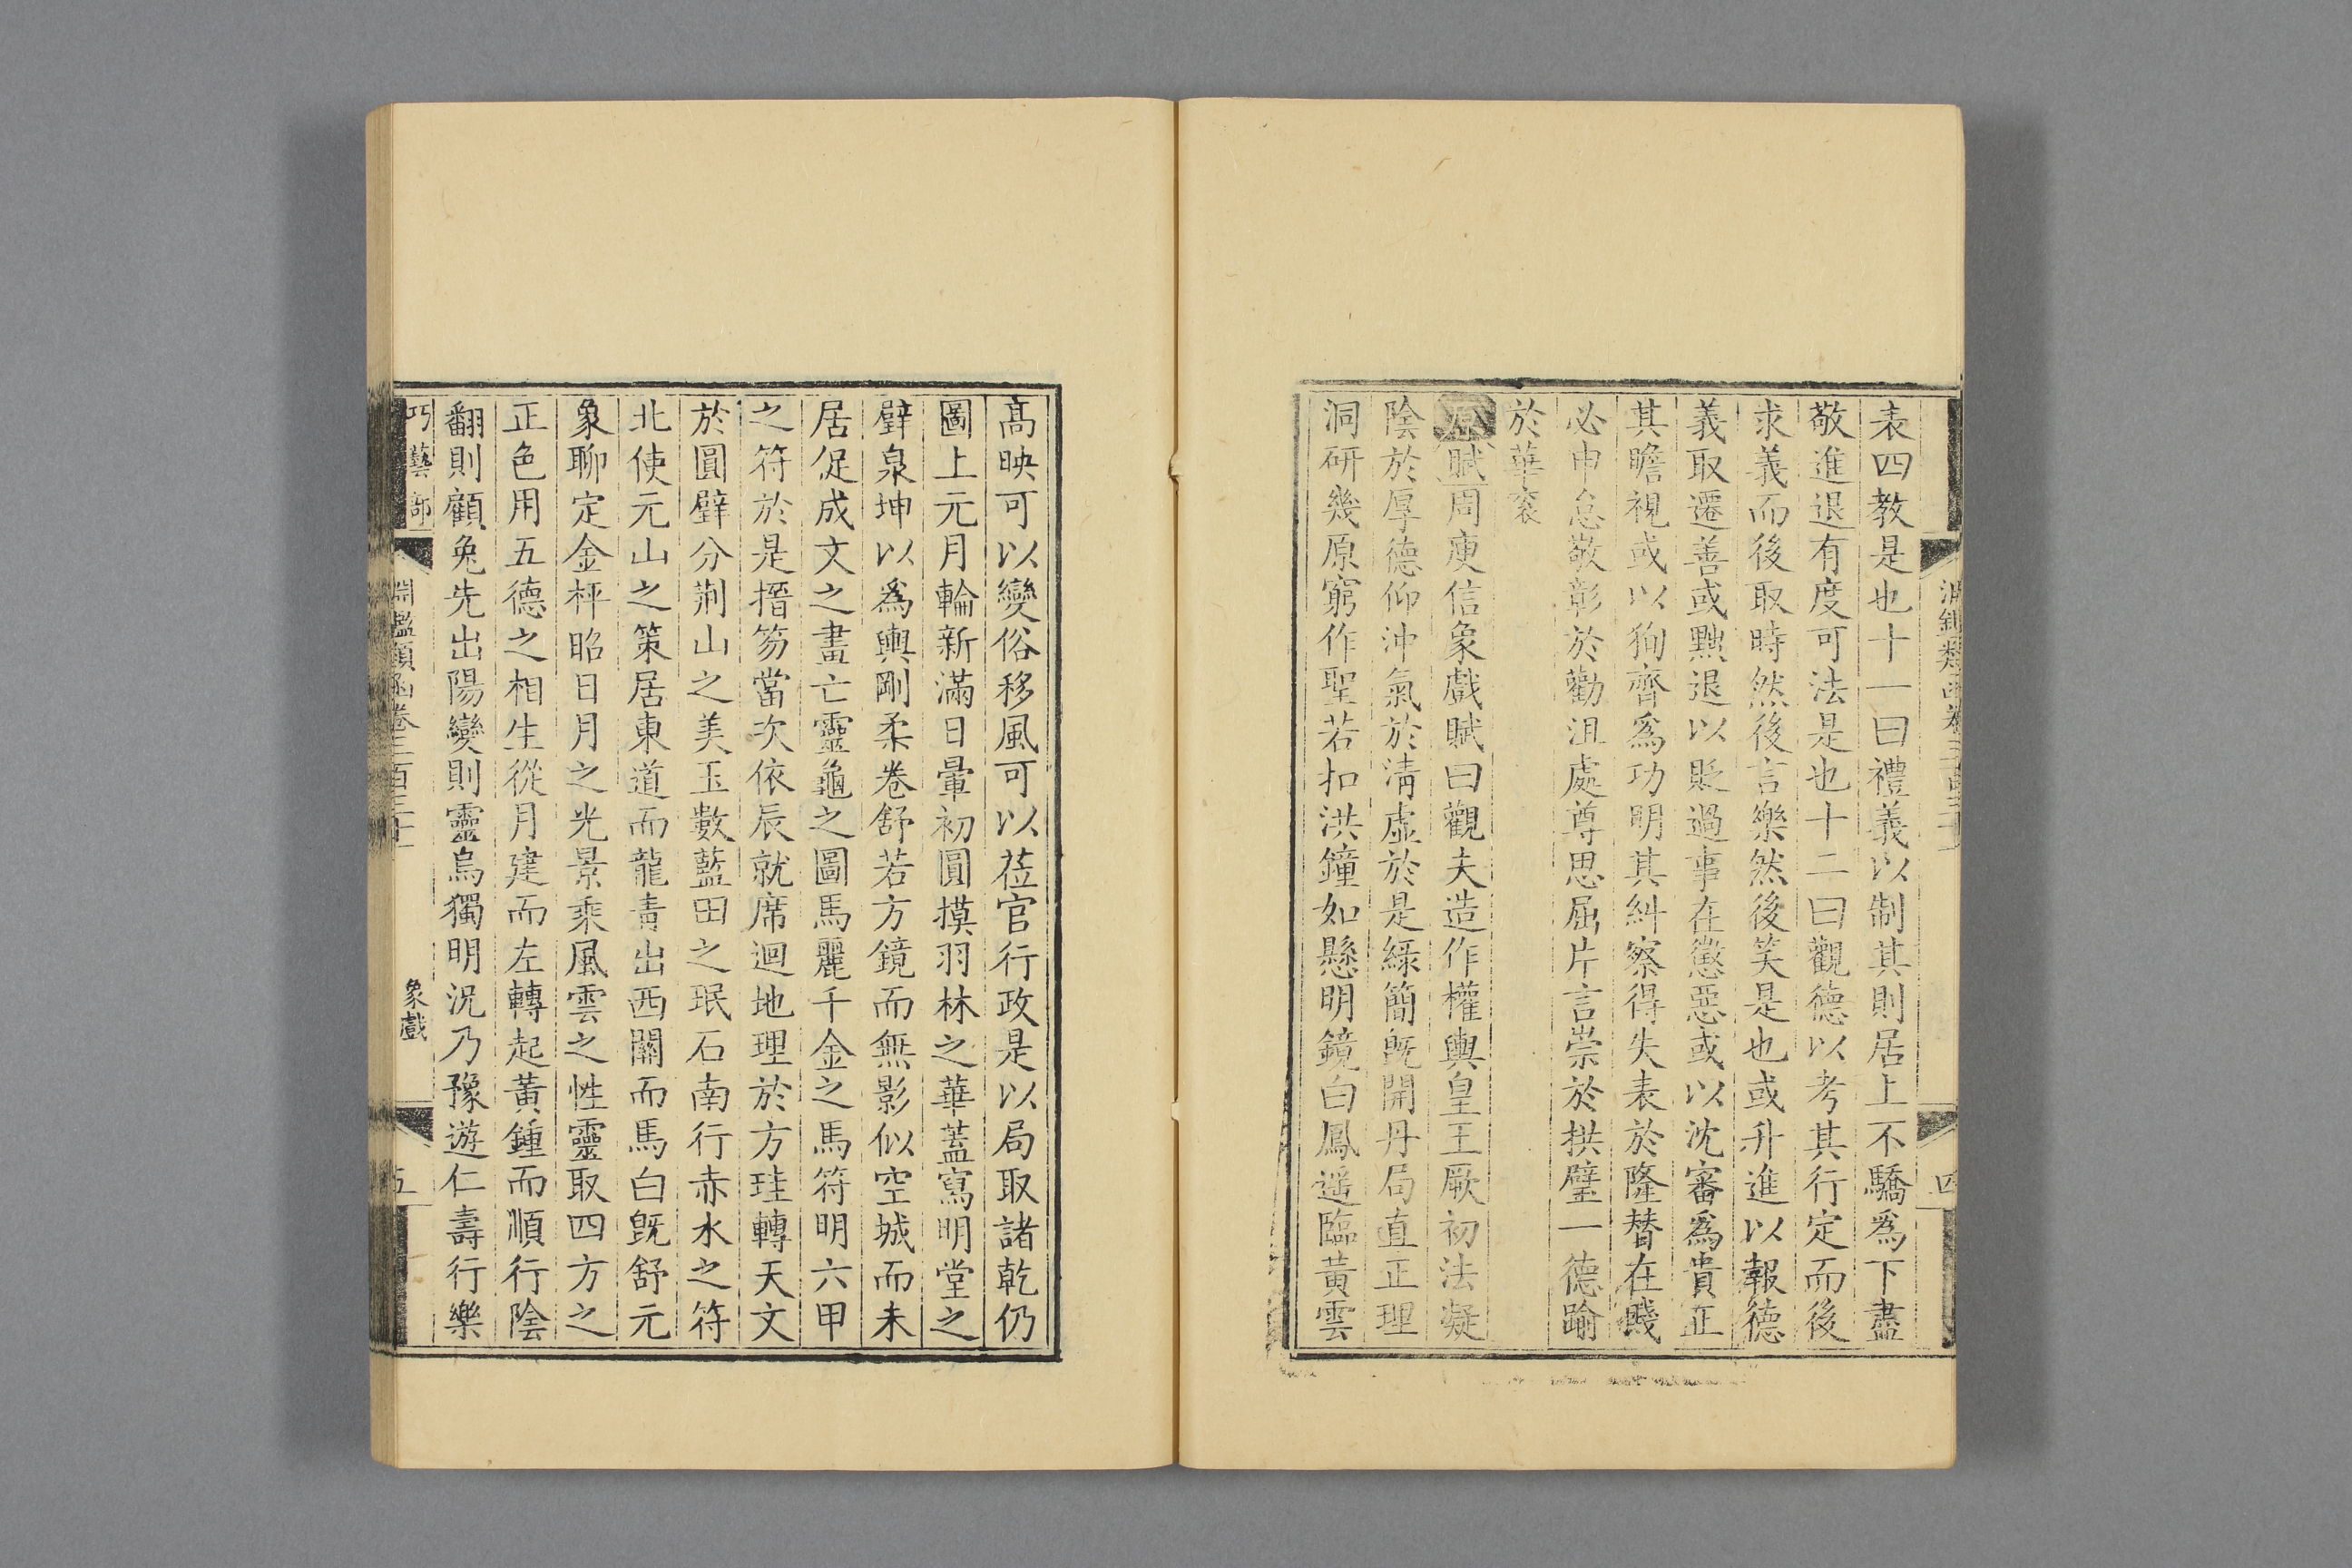 表四教是也十一曰禮義以制其則居上不驕爲下盡
敬進退有度可法是也十二曰觀德以考其行定而後
求義而後取時然後言樂然後笑是也或升進以報德
義取遷善或黜退以貶過事在懲惡或以沈審爲貴正
其瞻視或以徇齊爲功明其糾察得失表於隆替在賤
必申怠敬彰於勸沮處尊思屈片言崇於拱璧一德踰
於華衮
原賦周庾信象戲賦曰觀夫造作權輿皇王厥初法凝
陰於厚德仰沖氣於清虛於是綠簡旣開丹局直正理
洞研幾原窮作聖若扣洪鐘如懸明鏡白鳳遥臨黃雲
高映可以變俗移風可以莅官行政是以局取諸乾仍
圖上元月輪新滿日暈初圓摸羽林之華蓋寫明堂之
璧泉坤以爲輿剛柔卷舒若方鏡而無影似空城而未
居促成文之畫亡靈龜之圖馬麗千金之馬符明六甲
之符於是搢笏當次依辰就席迴地理於方珪轉天文
於圓璧分荆山之美玉數藍田之珉石南行赤水之符
北使元山之策居東道而龍青出西關而馬白旣舒元
象聊定金枰昭日月之光景乘風雲之性靈取四方之
正色用五德之相生從月建而左轉起黃鍾而順行陰
翻則顧兔先出陽變則靈烏獨明況乃豫遊仁壽行樂
巧藝部
淵鑑類函卷三百三十
象戲
五